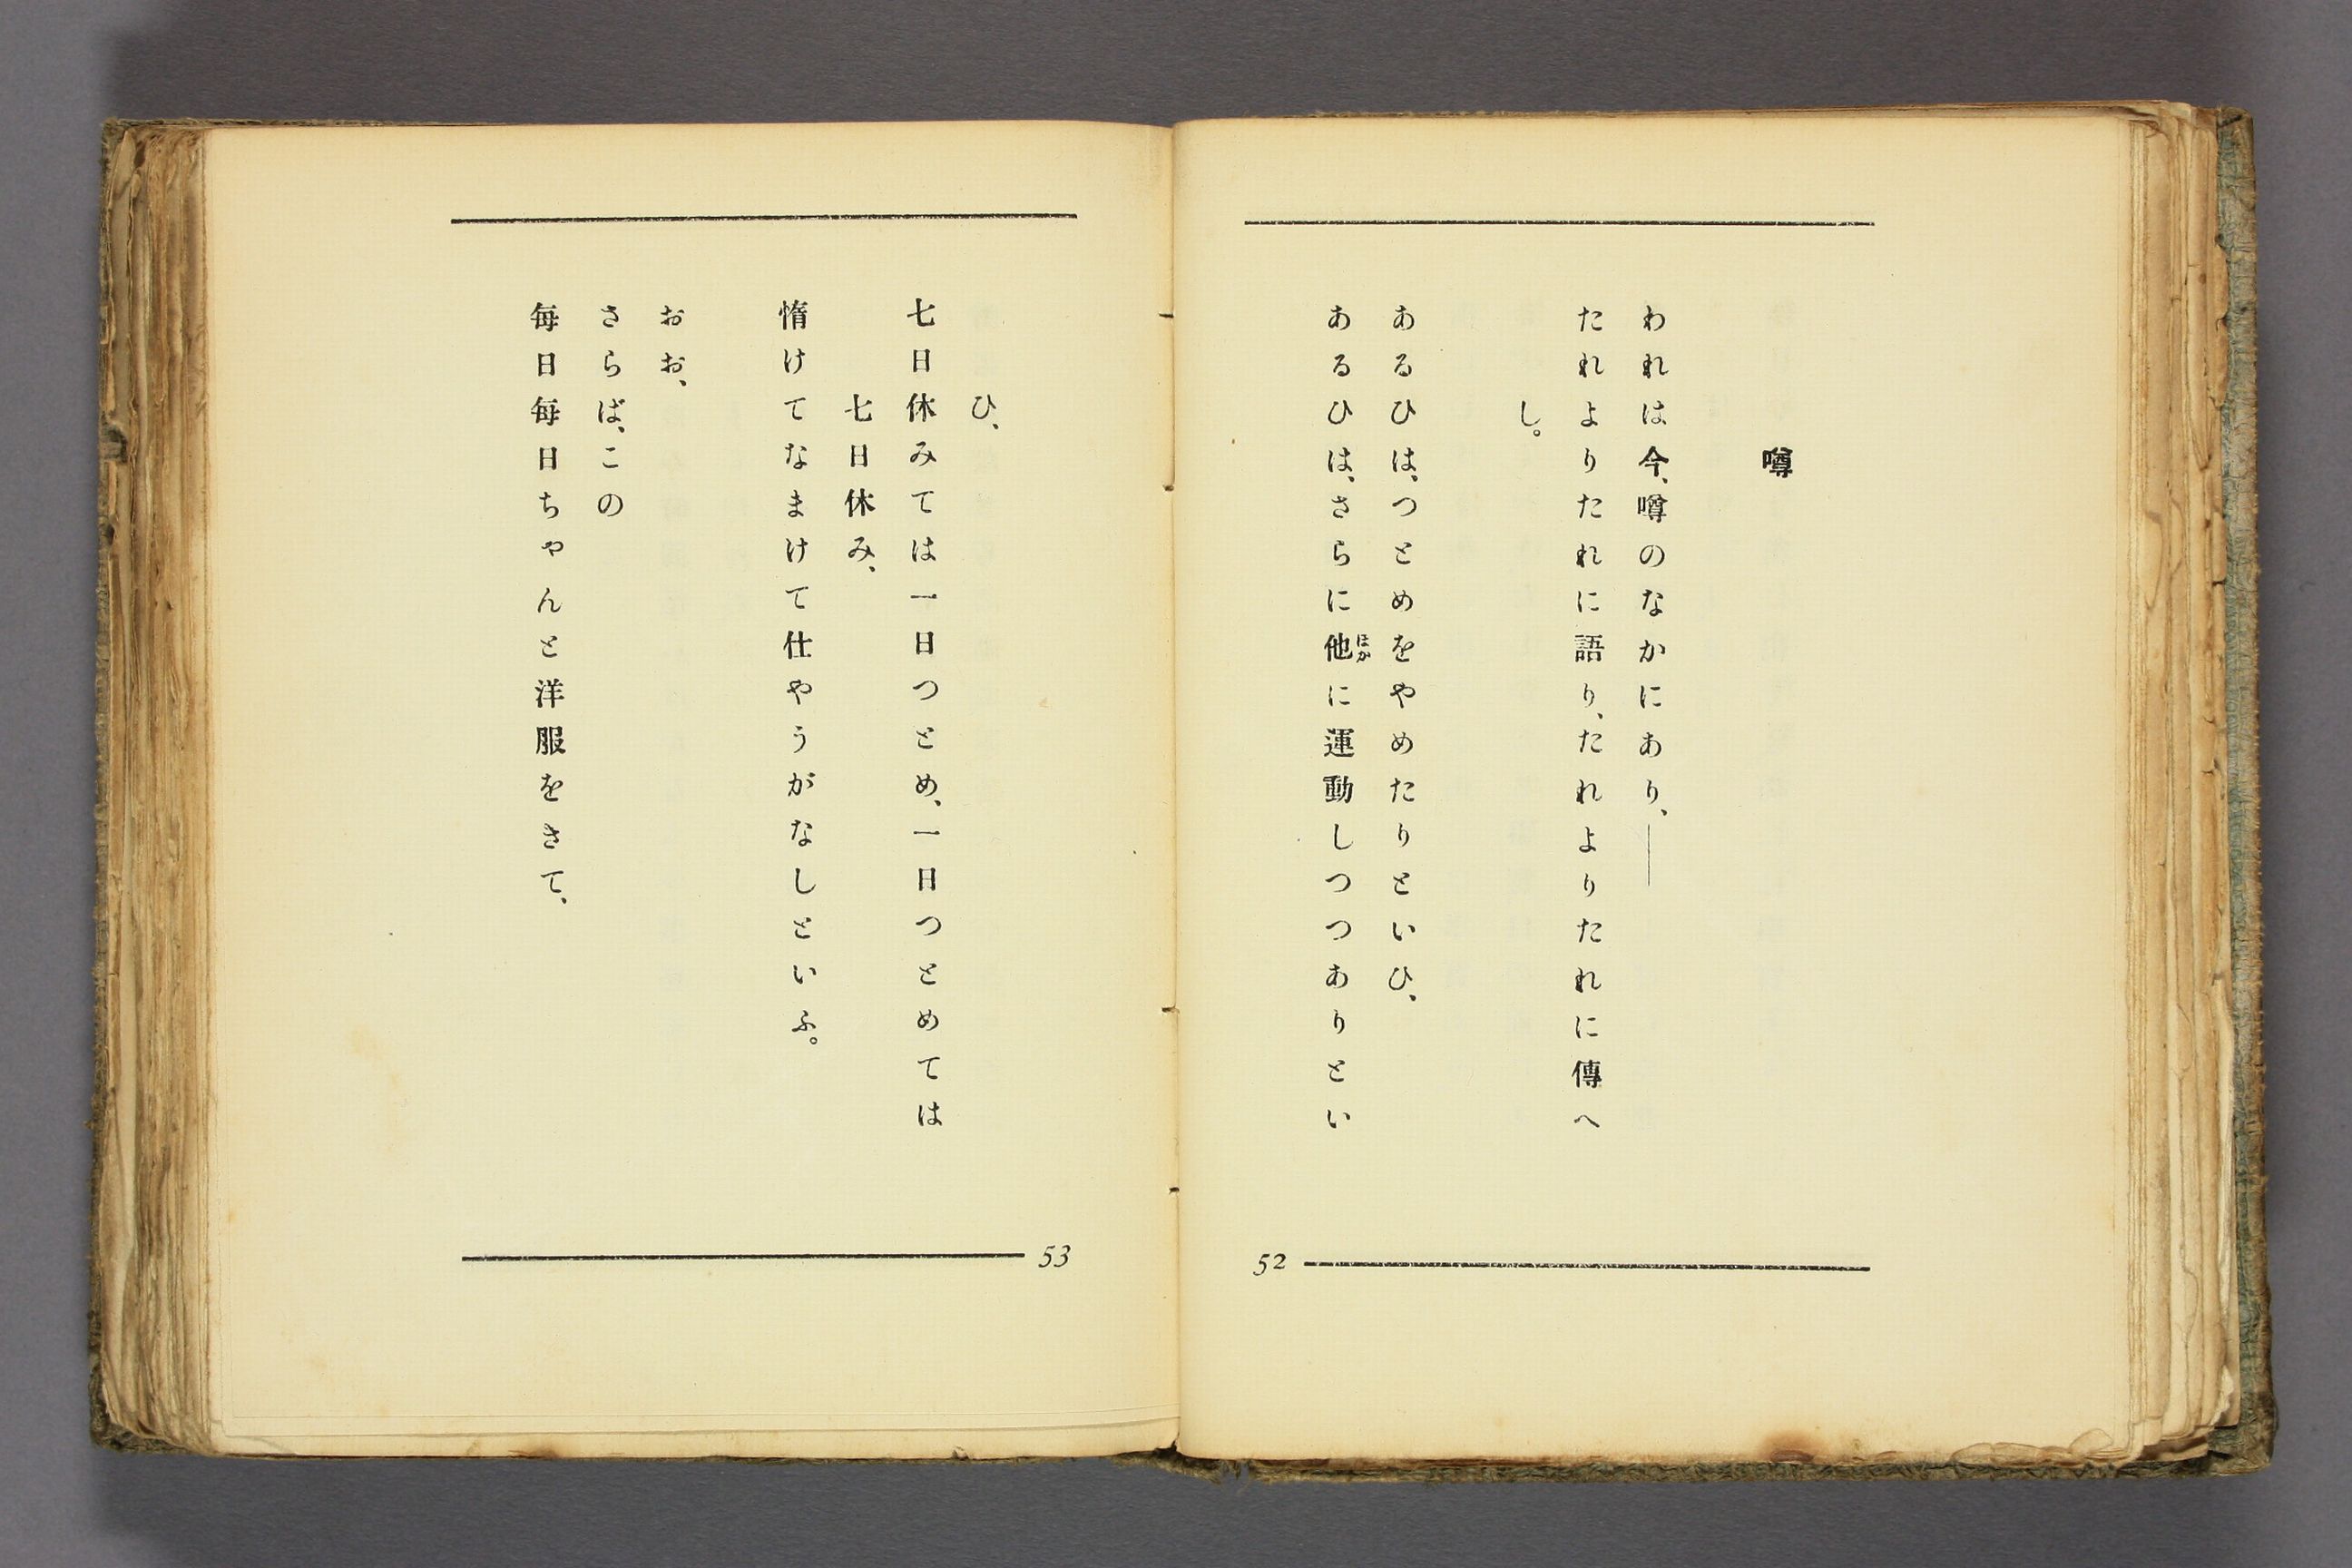 噂
われは今、噂のなかにあり、――
たれよりたれに語り、たれよりたれに傳へ
し。
あるひは、つとめをやめたりといひ、
あるひは、さらに他に運動しつつありとい
ほか
52
ひ、
七日休みては一日つとめ、一日つとめては
七日休み、
惰けてなまけて仕やうがなしといふ。
おお、
さらば、この
毎日毎日ちやんと洋服をきて、
53